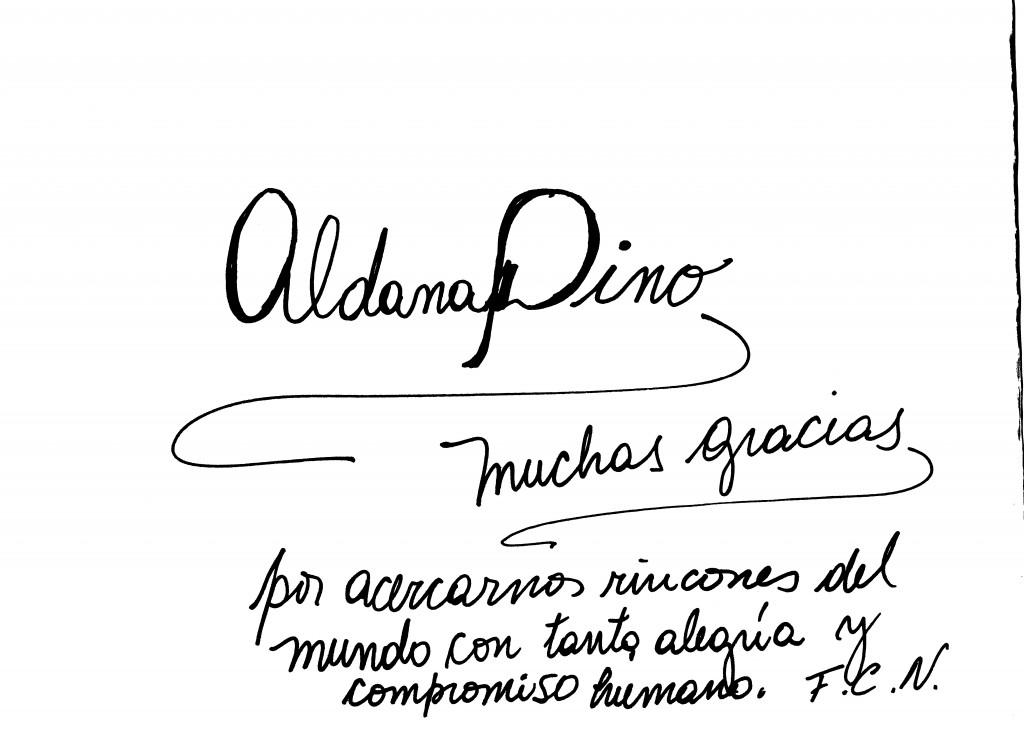 Aldana Pino
muchas gracias
por acercarnos rincones del
mundo con tanta alegría y
compromiso humano. F.C.N.